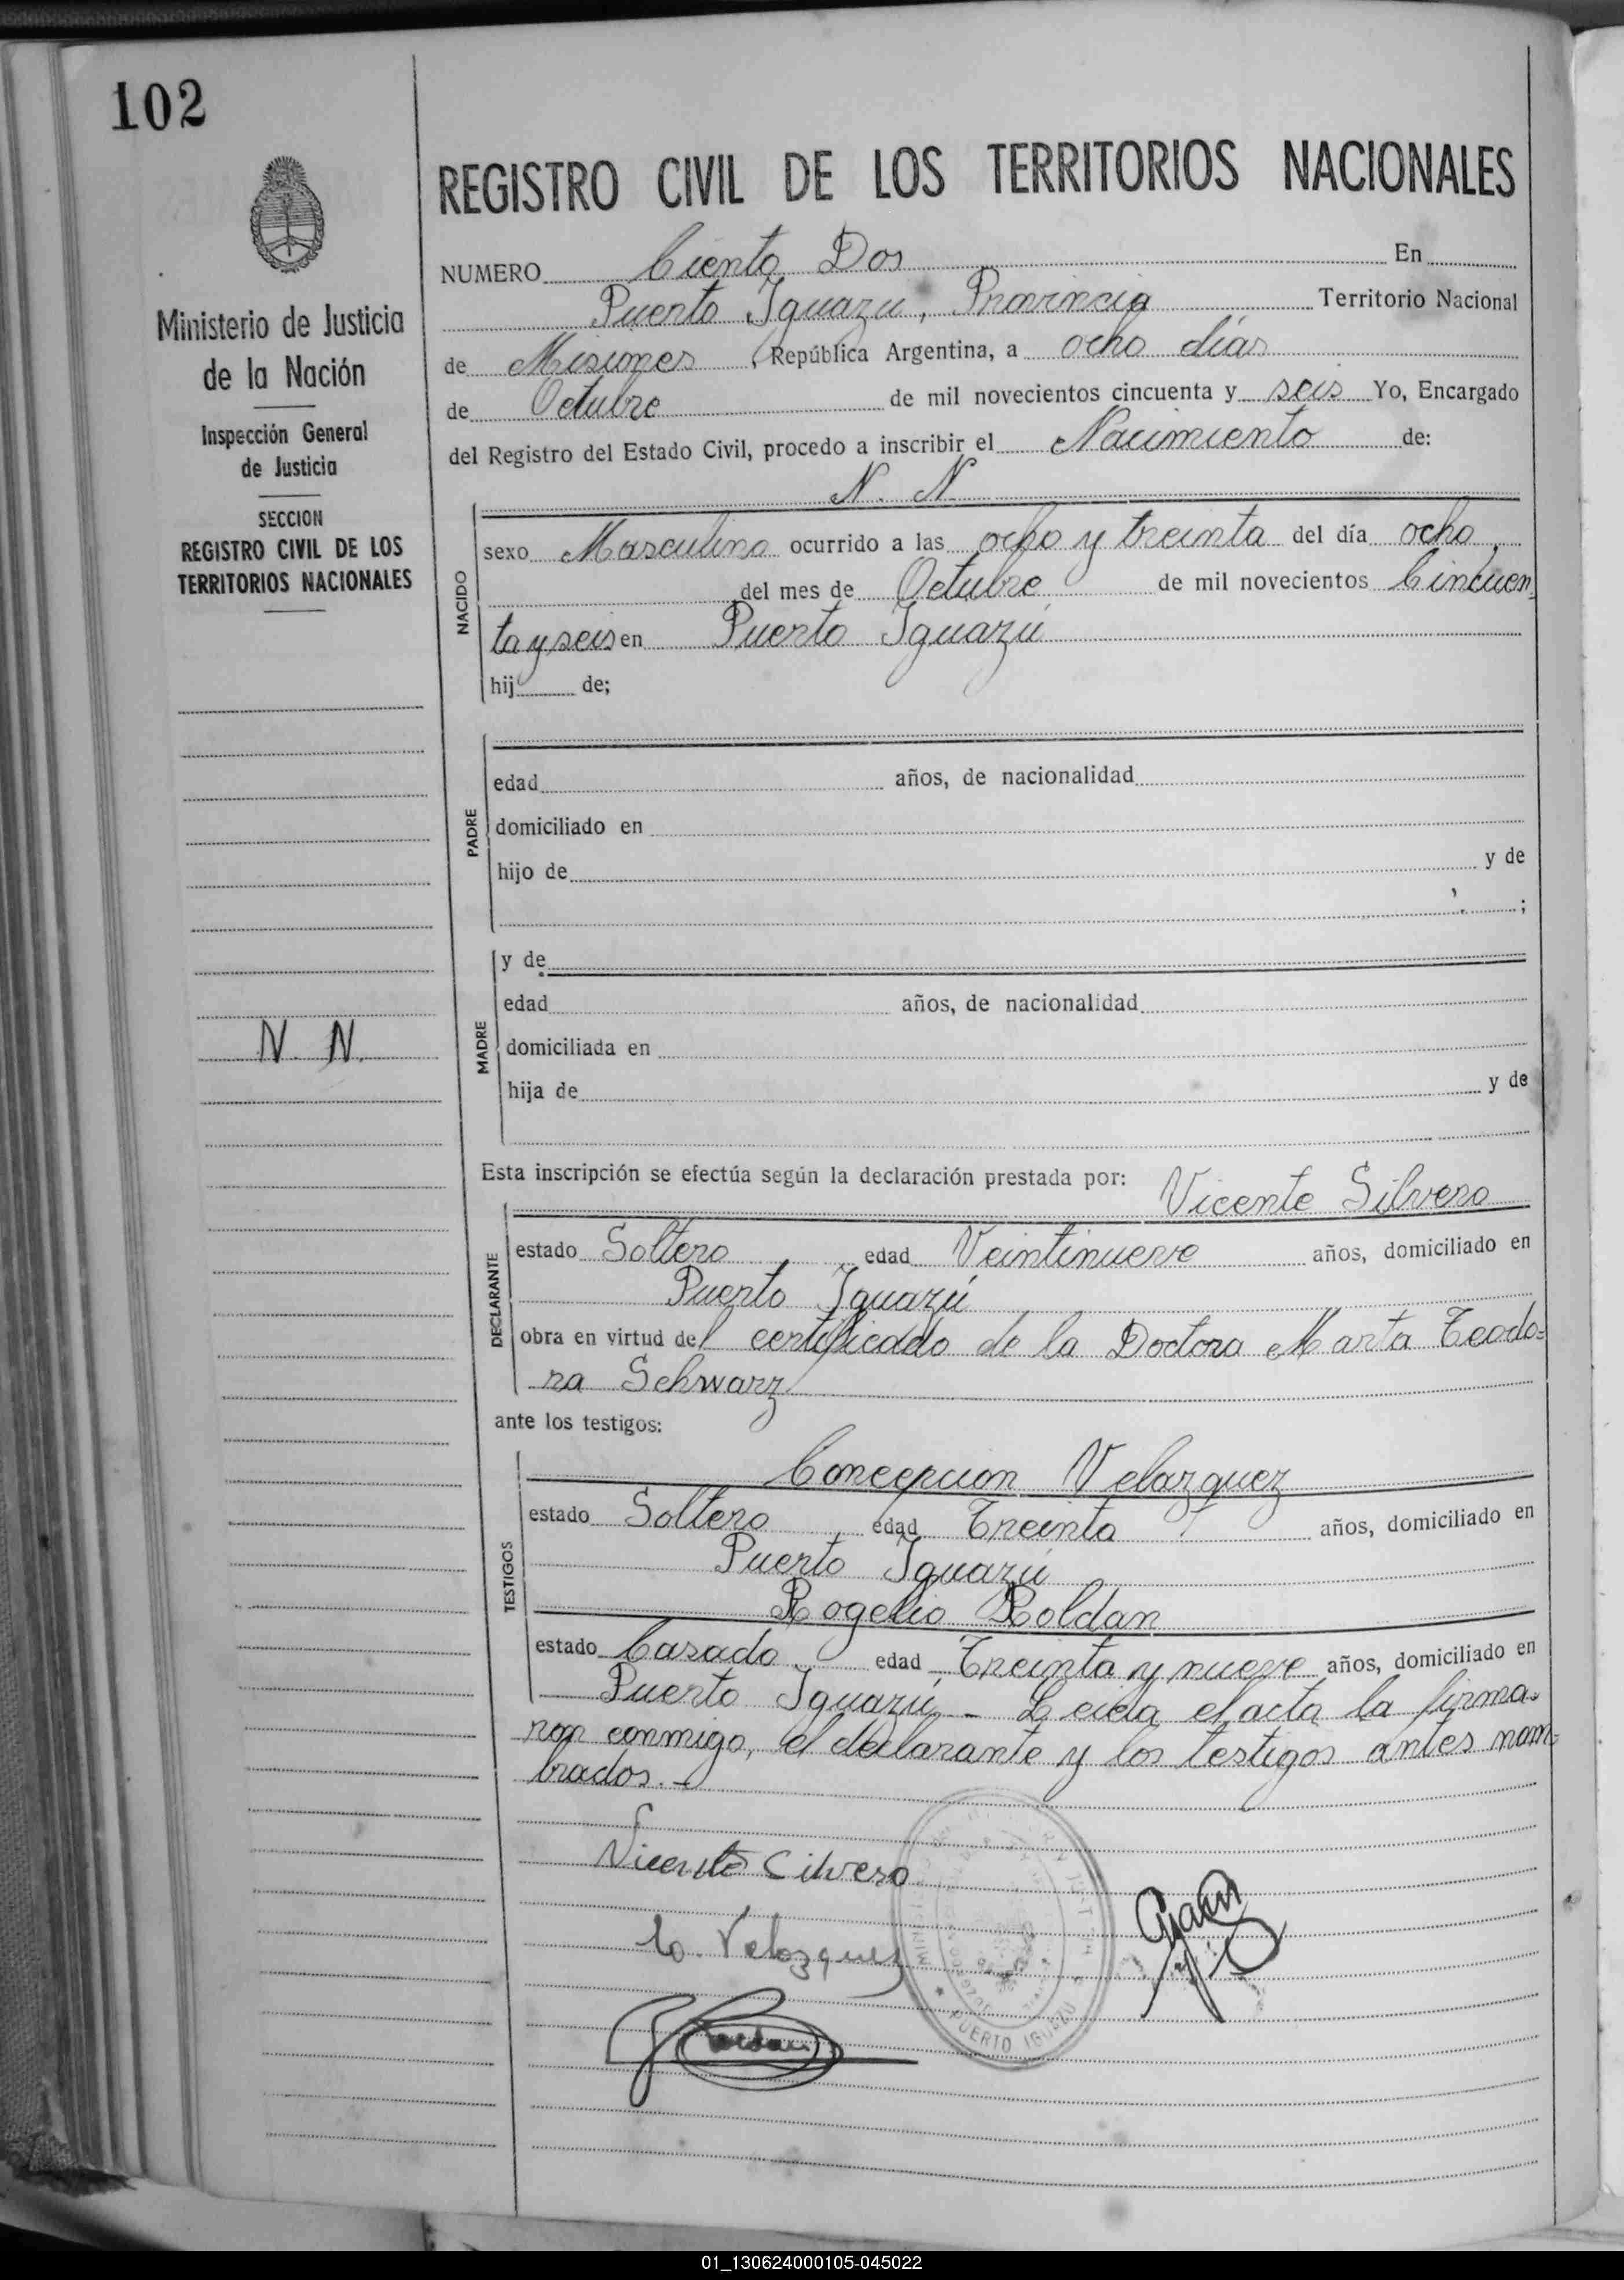 102
REGISTRO CIVIL DE LOS TERRITORIOS NACIONALES
Ministerio de Justicia
de la Nación
Inspección General
de Justicia
SECCION
REGISTRO CIVIL DE LOS
TERRITORIOS NACIONALES
N. N.
NUMERO Ciento Dos En
Puerto Iguazu, Provincia Territorio Nacional
de Misiones, República Argentina, a ocho días
de Octubre de mil novecientos cincuenta y seis Yo, Encargado
del Registro del Estado Civil, procedo a inscribir el Nacimiento de:
N. N.
NACIDO
sexo Masculino ocurrido a las ocho y treinta del día ocho
del mes de Octubre de mil novecientos Cincuen
ta y seis en Puerto Iguazú
hij de;
PADRE
edad años, de nacionalidad
domiciliado en
hijo de y de
;
MADRE
y de
edad años, de nacionalidad
domiciliada en
hija de y de
Esta inscripción se efectúa según la declaración prestada por: Vicente Silvero
DECLARANTE
estado Soltero edad Veintinueve años, domiciliado en
Puerto Iguazú
obra en virtud del certificado de la Doctora Marta Teodo=
ra Schwarz
ante los testigos:
TESTIGOS
Concepcion Velazquez
estado Soltero edad Treinta años, domiciliado en
Puerto Iguazú
Rogelio Roldan
estado Casado edad Treinta y nueve años, domiciliado en
Puerto Iguazú - Leida el acta la firma=
ron conmigo, el declarante y los testigos antes nom=
brados.-
Vicente Cilvero
Co. Velozquez
PUERTO IGUAZU
01_130624000105-045022